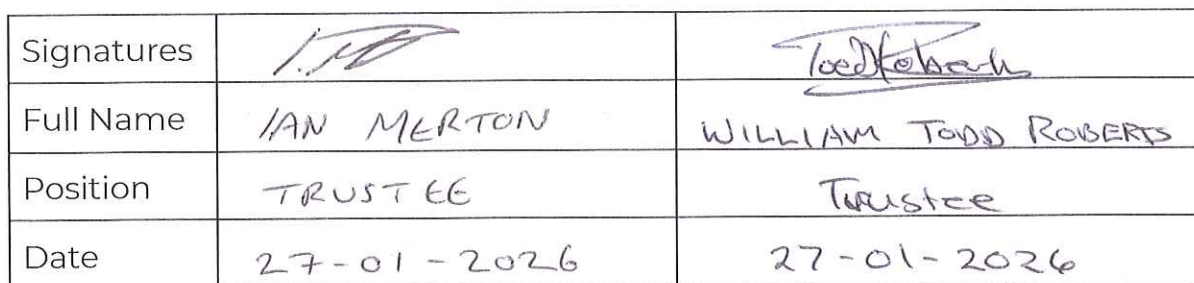 Signatures I. M Todd Roberts
Full Name IAN MERTON WILLIAM TODD ROBERTS
Position TRUSTEE Trustee
Date 27-01-2026 27-01-2026